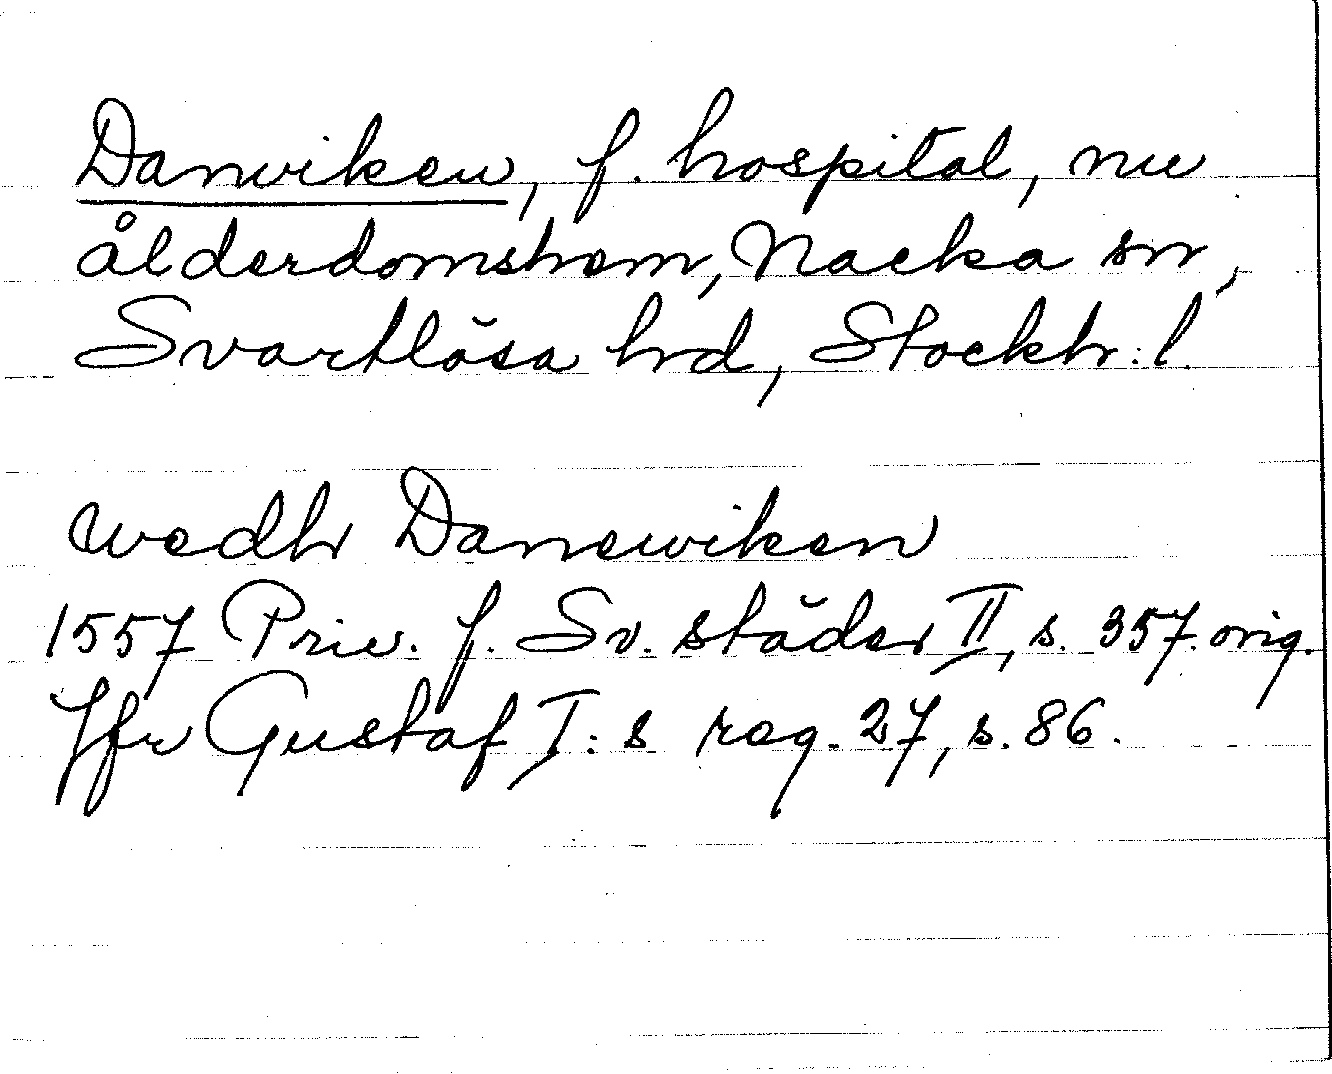 Danviken, f. hospital, nu
ålderdomshem, Nacka sn,
Svartlösa hrd, Stockh:l.
wedh Danewiken
1557 Priv. f. Sv. städer II, s. 357. orig.
Jfr Gustaf I:s reg. 27, s. 86.